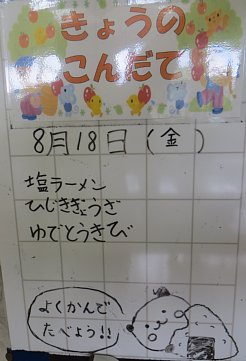 きょうの
こんだて
8月18日(金)
塩ラーメン
ひじきぎょうざ
ゆでとうきび
よくかんで
たべよう!!